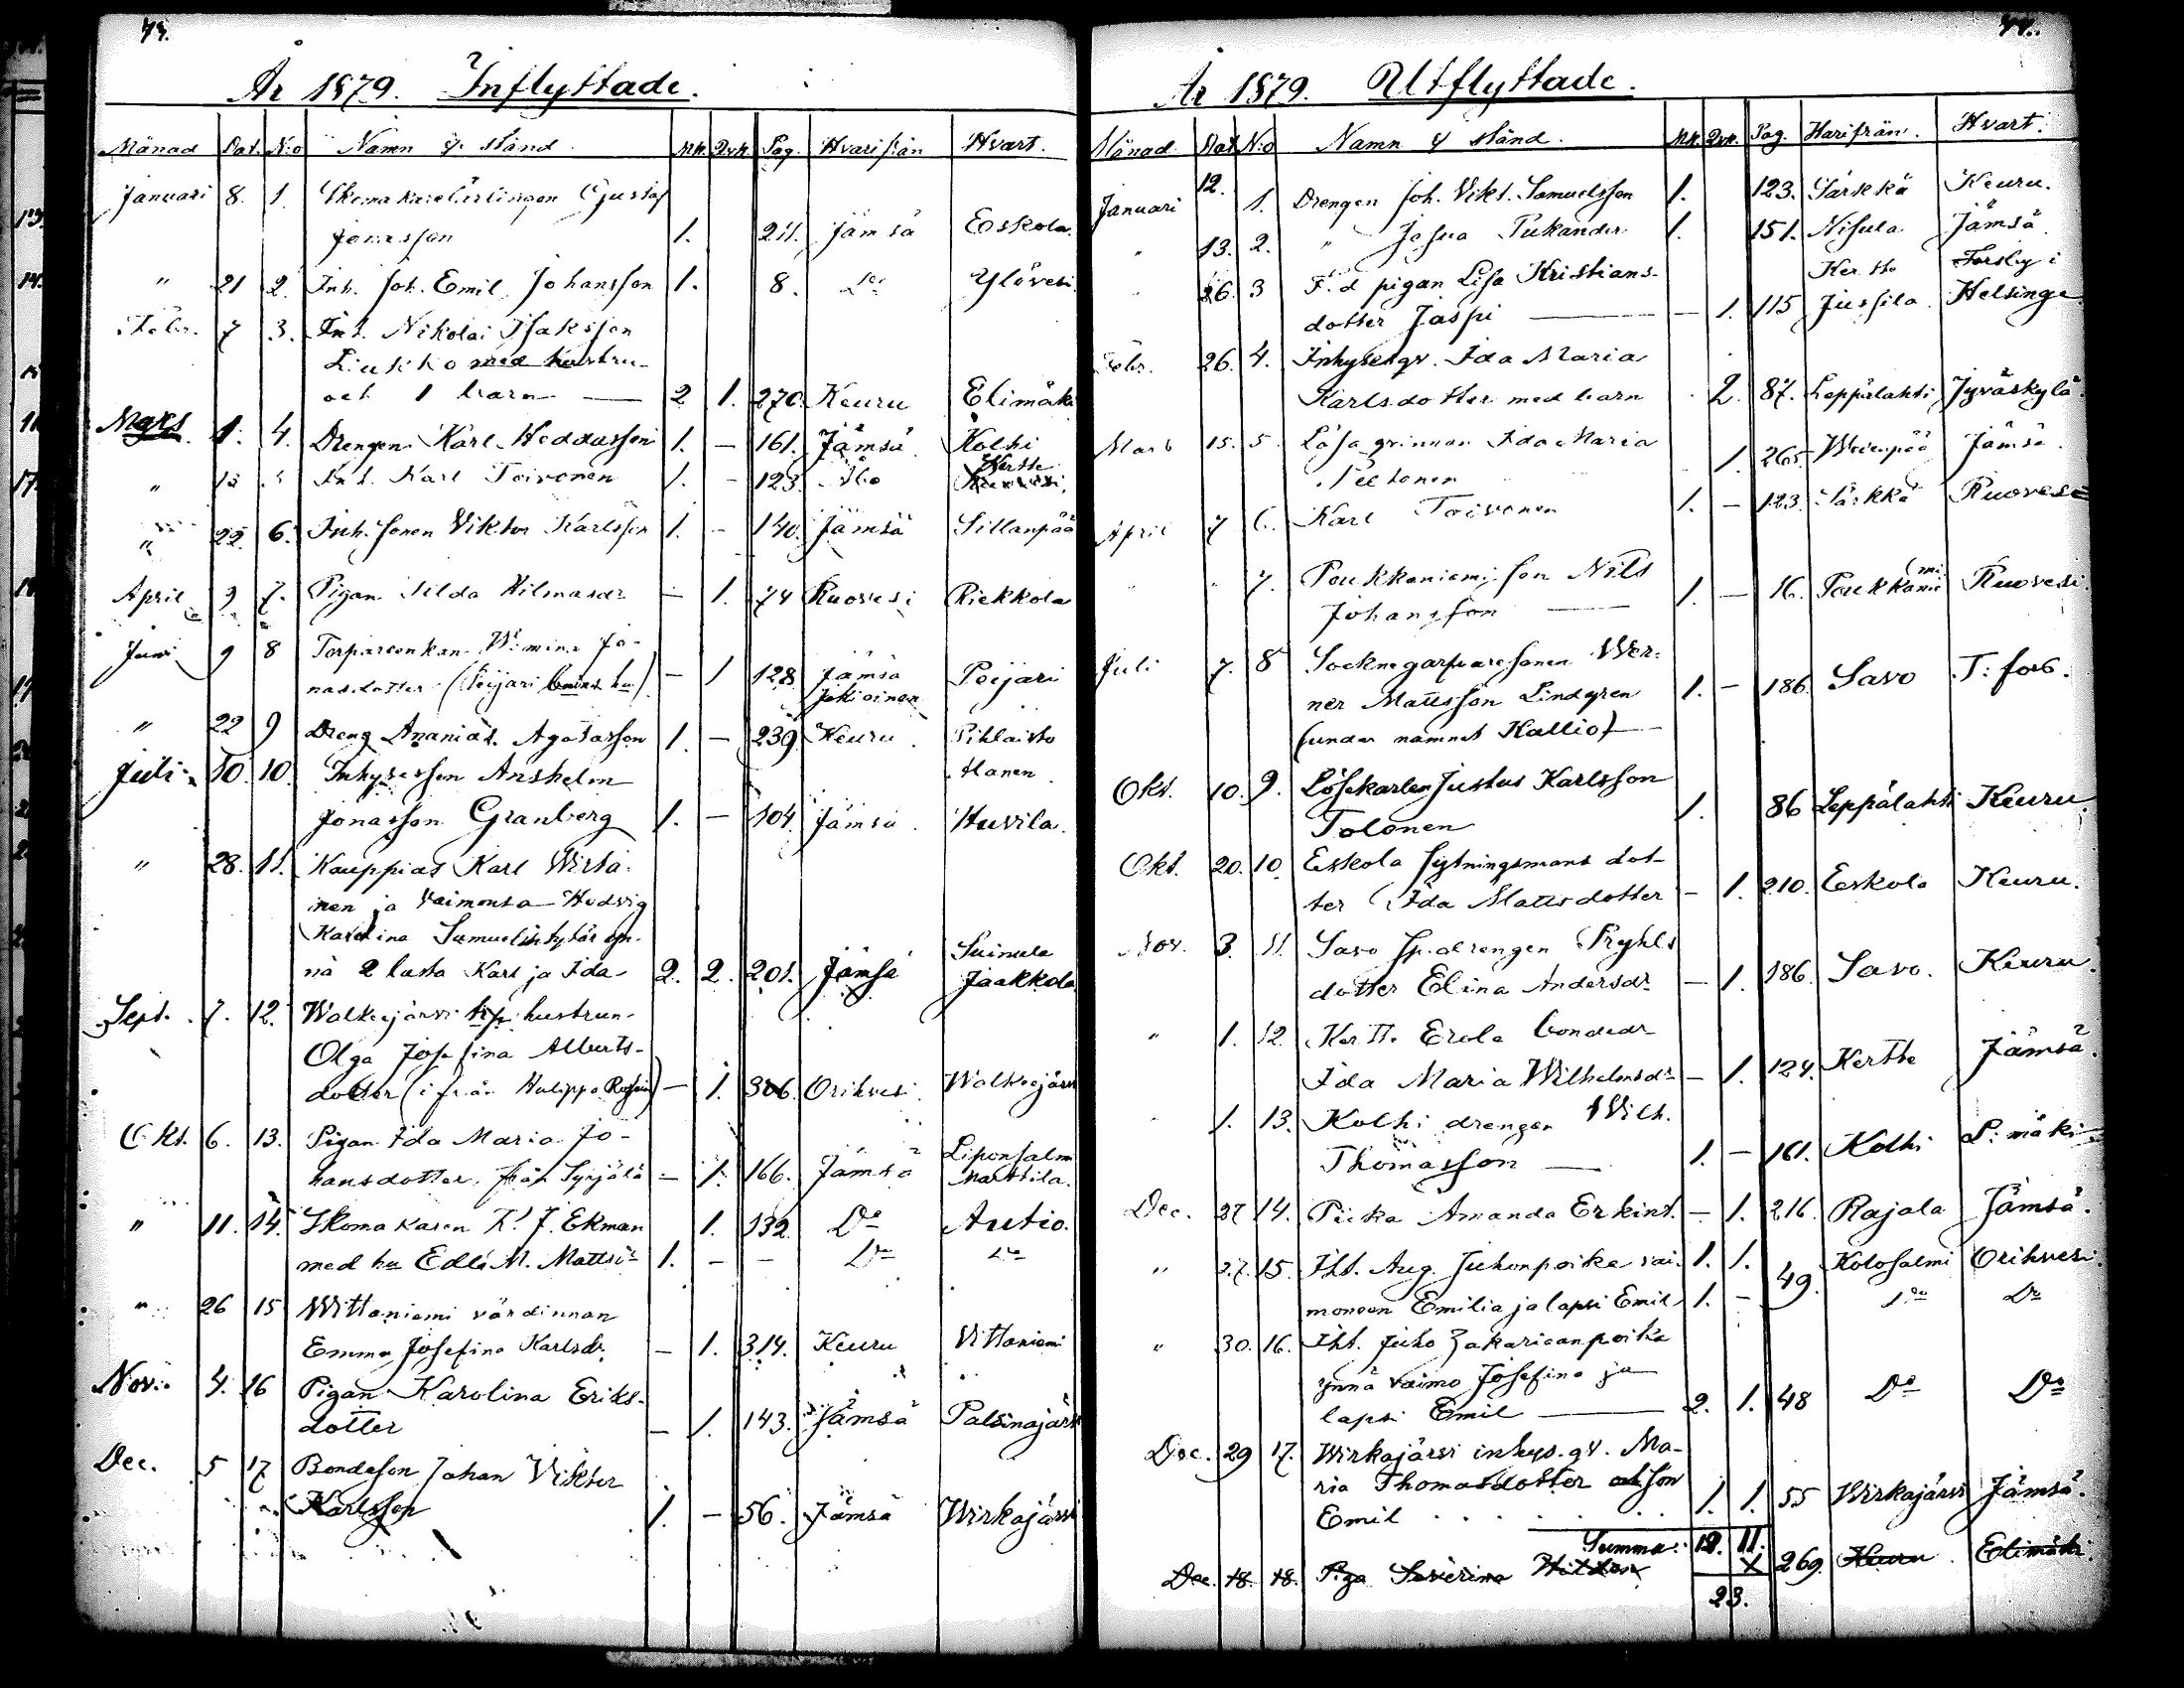 År 1879. Inflyttade.
Månad Dat. N:o Namn & stånd Mk. Qvk. Pag. Hvarifrån Hvart.
Januari 8. 1. Skomakarelärlingen Gustaf
Jonasson 1. 211. Jämsä Eskola.
" 21 2. Inh. Joh. Emil Johansson 1. 8. D:o Ylövesi
Febr. 7 3. Inh. Nikolai Isaksson
Liukko med hustru
och 1 barn — 2 1. 270. Keuru Elimäki
Mars 1. 4. Drengen Karl Heddasson 1. — 161. Jämsä Kolhi
" Inh. Karl Toivonen 1. - 123. Åbo Kertte
" 22. 6. Inh. sonen Viktor Karlsson 1. - 140. Jämsä Sillanpää
April 9 7. Pigan Hilda Hilmasdr — 1. 74 Ruovesi Riekkola
Juni 9 8 Torpareenkan W:mina Jo-
nasdotter (Peijari hu) — 1 128. Jämsä Peijari
Jokioinen
" 22 9 Dreng Ananias Agatasson 1. — 239. Keuru Pihlaisto
Juli 10. 10. Inhyseson Anshelm Hanen
Jonasson Granberg 1. — 104. Jämsä Huvila.
" 28. 11. Kauppias Karl Wirta-
nen ja Vaimonsa Hedvig
Karolina Samuelintytär yn-
nä 2 lasta Karl ja Ida 2. 2. 201. Jämsä Suinula Jaakkola
Sept. 7. 12. Walkejärvi hustrun
Olga Josefina Alberts-
dotter (ifrån — 1. 306. Orihvesi Walkejärvi
Okt. 6. 13. Pigan Ida Maria Jo-
hansdotter från Syrjälä — 1. 166. Jämsä Liponsalmi Marttila.
" 11. 14. Skomakaren K. J. Ekman 1. 132. D:o Autio.
med hu Edla M. Mattsdr 1. - - D:o D:o
" 26 15 Wittaniemi värdinnan
Emma Josefina Karlsdr. — 1. 314. Keuru Vittaniemi
Nov. 4. 16 Pigan Karolina Eriks-
dotter — 1. 143. Jämsä Palsinajärvi
Dec. 5 17 Bondeson Johan Viktor
Karlsson 1. — 56. Jämsä Wirkajärvi
44.
År 1879. Utflyttade.
Månad Dat N:o Namn & stånd. Mk. Qvk. Pag. Harifrån. Hvart.
Januari 12. 1. Drengen Joh. Vikt. Samuelsson 1. 123. Särkkä Keuru.
" 13. 2. " Josua Pukander 1. 151. Nisula Jämsä.
" 26. 3 F. d pigan Lisa Kristians- Kertte Forsby i
dotter Jaspi — — 1. 115 Jussila Helsinge
Febr. 26. 4. Inhyseqv. Ida Maria
Karlsdotter med barn 2. 87. Leppälahti Jyväskylä.
Mars 15. 5. Lösa qvinnan Ida Maria
1. 265. Jämsä.
April 7 6. Karl Toivonen 1. — 123. Särkkä Ruovesi
" " 7. Poukkaniemi son Nils
Johansson — 1. — 16. Poukkaniemi Ruovesi.
Juli 7. 8 Socknegarfvaresonen Wer-
ner Mattsson Lindgren 1. — 186. Savo T:fors.
(under namnet Kallio)
Okt. 10. 9. Lösekarlen Justus Karlsson
Tolonen 1. 86 Leppälahti Keuru.
Okt. 20. 10. Eskola sytningsmans dot-
ter Ida Mattsdotter — 1. 210. Eskola Keuru.
Nov. 3. 11. Savo sp. drengen Prykls
dotter Elina Andersdr — 1. 186. Savo. Keuru.
" 1. 12. Kertte Erola bondedr
Ida Maria Wilhelmsdr — 1. 124. Kertte Jämsä.
" 1. 13. Kolhi drengen Wilh.
Thomasson — 1. — 161. Kolhi
Dec. 27 14. Piika Amanda Erkint. — 1. 216. Rajala Jämsä.
" 27. 15. Iht. Aug. Juhonpoika vai- 1. 1. 49. Kolosalmi Orihvesi.
moneen Emilia ja lapsi Emil 1. - D:o D:o
" 30. 16. Iht. Juho Zakariaanpoika
ynnä vaimo Josefina ja
lapsi Emil — 2. 1. 48 D:o D:o
Dec. 29 17. Wirkajärvi inhys. qv. Ma-
ria Thomasdotter och son
Emil . . . . 1. 1. 55 Wirkajärvi Jämsä.
Summa: 12. 11.
Dec. 18. 18. Piga Severina 269. Keuru Elimäki.
23.